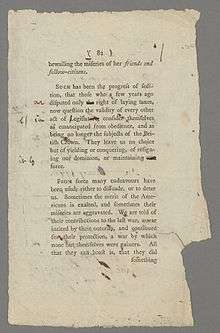 [ 82 ]
bewailing the miſeries of her friends and
fellow-citizens.
SUCH has been the progreſs of ſedi-
tion, that thoſe who a few years ago
diſputed only the right of laying taxes,
now queſtion the validity of every other
act of Legiſlature, conſider themſelves
as emancipated from obedience, and as
being no longer the ſubjects of the Bri-
tiſh Crown. They leave us no choice
but of yielding or conquering, of reſign-
ing our dominion, or maintaining
force.
FROM force many endeavours have
been uſed either to diſſuade, or to deter
us. Sometimes the merit of the Ame-
ricans is exalted, and ſometimes their
are aggravated. We are told of
their contributions to the laſt war, a war
incited by their outcries, and continued
for their protection, a war by which
none but themſelves were gainers. All
that they can boaſt is, that they did
ſomething